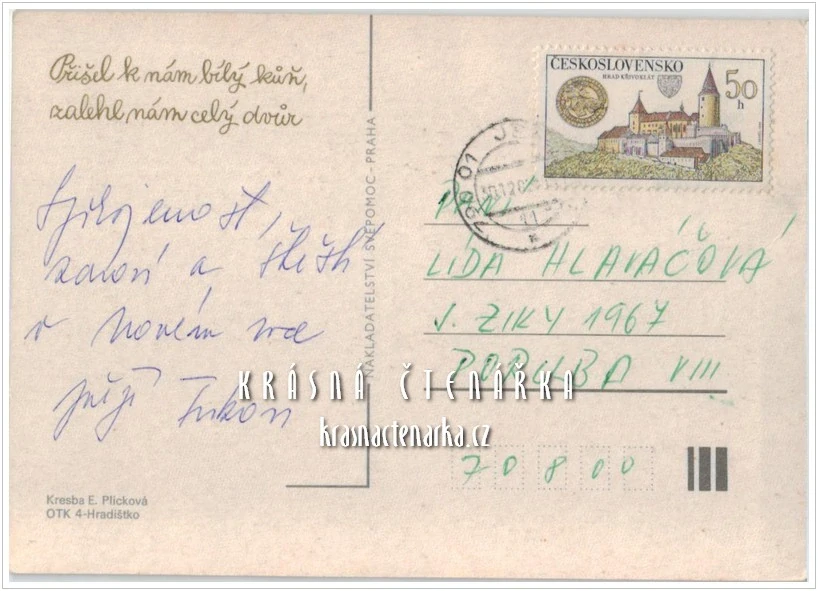 Přišel k nám bílý kůň,
zalehl nám celý dvůr
Spokojenost,
zdraví a štěstí
v novém roce
přejí
NAKLADATELSTVÍ SVÉPOMOC - PRAHA
Kresba E. Plicková
OTK 4-Hradištko
ČESKOSLOVENSKO
HRAD KŘIVOKLÁT
50
h
PANÍ
LÍDA HLAVÁČOVÁ
J. ZIKY 1967
PORUBA VIII
70800
KRÁSNÁ ČTENÁŘKA
krasnactenarka.cz